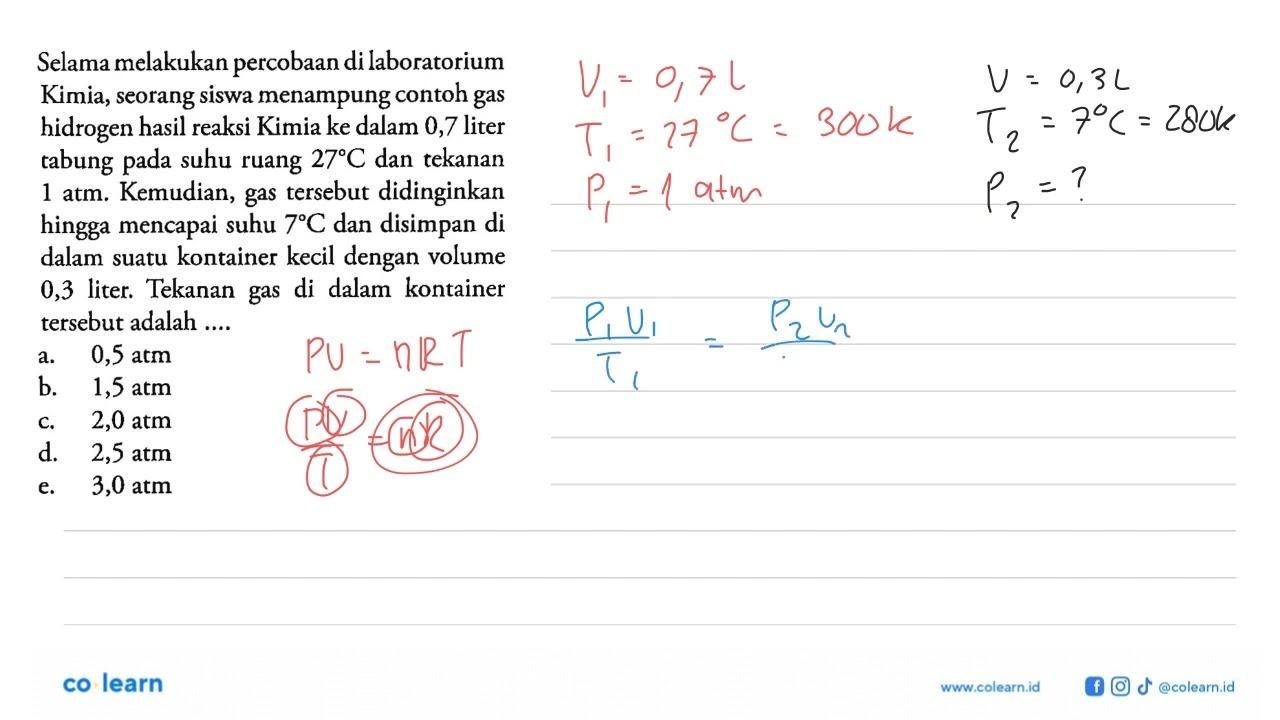 Selama melakukan percobaan di laboratorium
Kimia, seorang siswa menampung contoh gas
hidrogen hasil reaksi Kimia ke dalam 0,7 liter
tabung pada suhu ruang 27°C dan tekanan
1 atm. Kemudian, gas tersebut didinginkan
hingga mencapai suhu 7°C dan disimpan di
dalam suatu kontainer kecil dengan volume
0,3 liter. Tekanan gas di dalam kontainer
tersebut adalah ....
a. 0,5 atm
b. 1,5 atm
c. 2,0 atm
d. 2,5 atm
e. 3,0 atm
PV = nRT
PV/T = nR
V₁ = 0,7 L
T₁ = 27 °C = 300K
P₁ = 1 atm
V = 0,3 L
T₂ = 7°C = 280K
P₂ = ?
P₁ V₁ / T₁ = P₂ V₂
co learn
www.colearn.id
@colearn.id